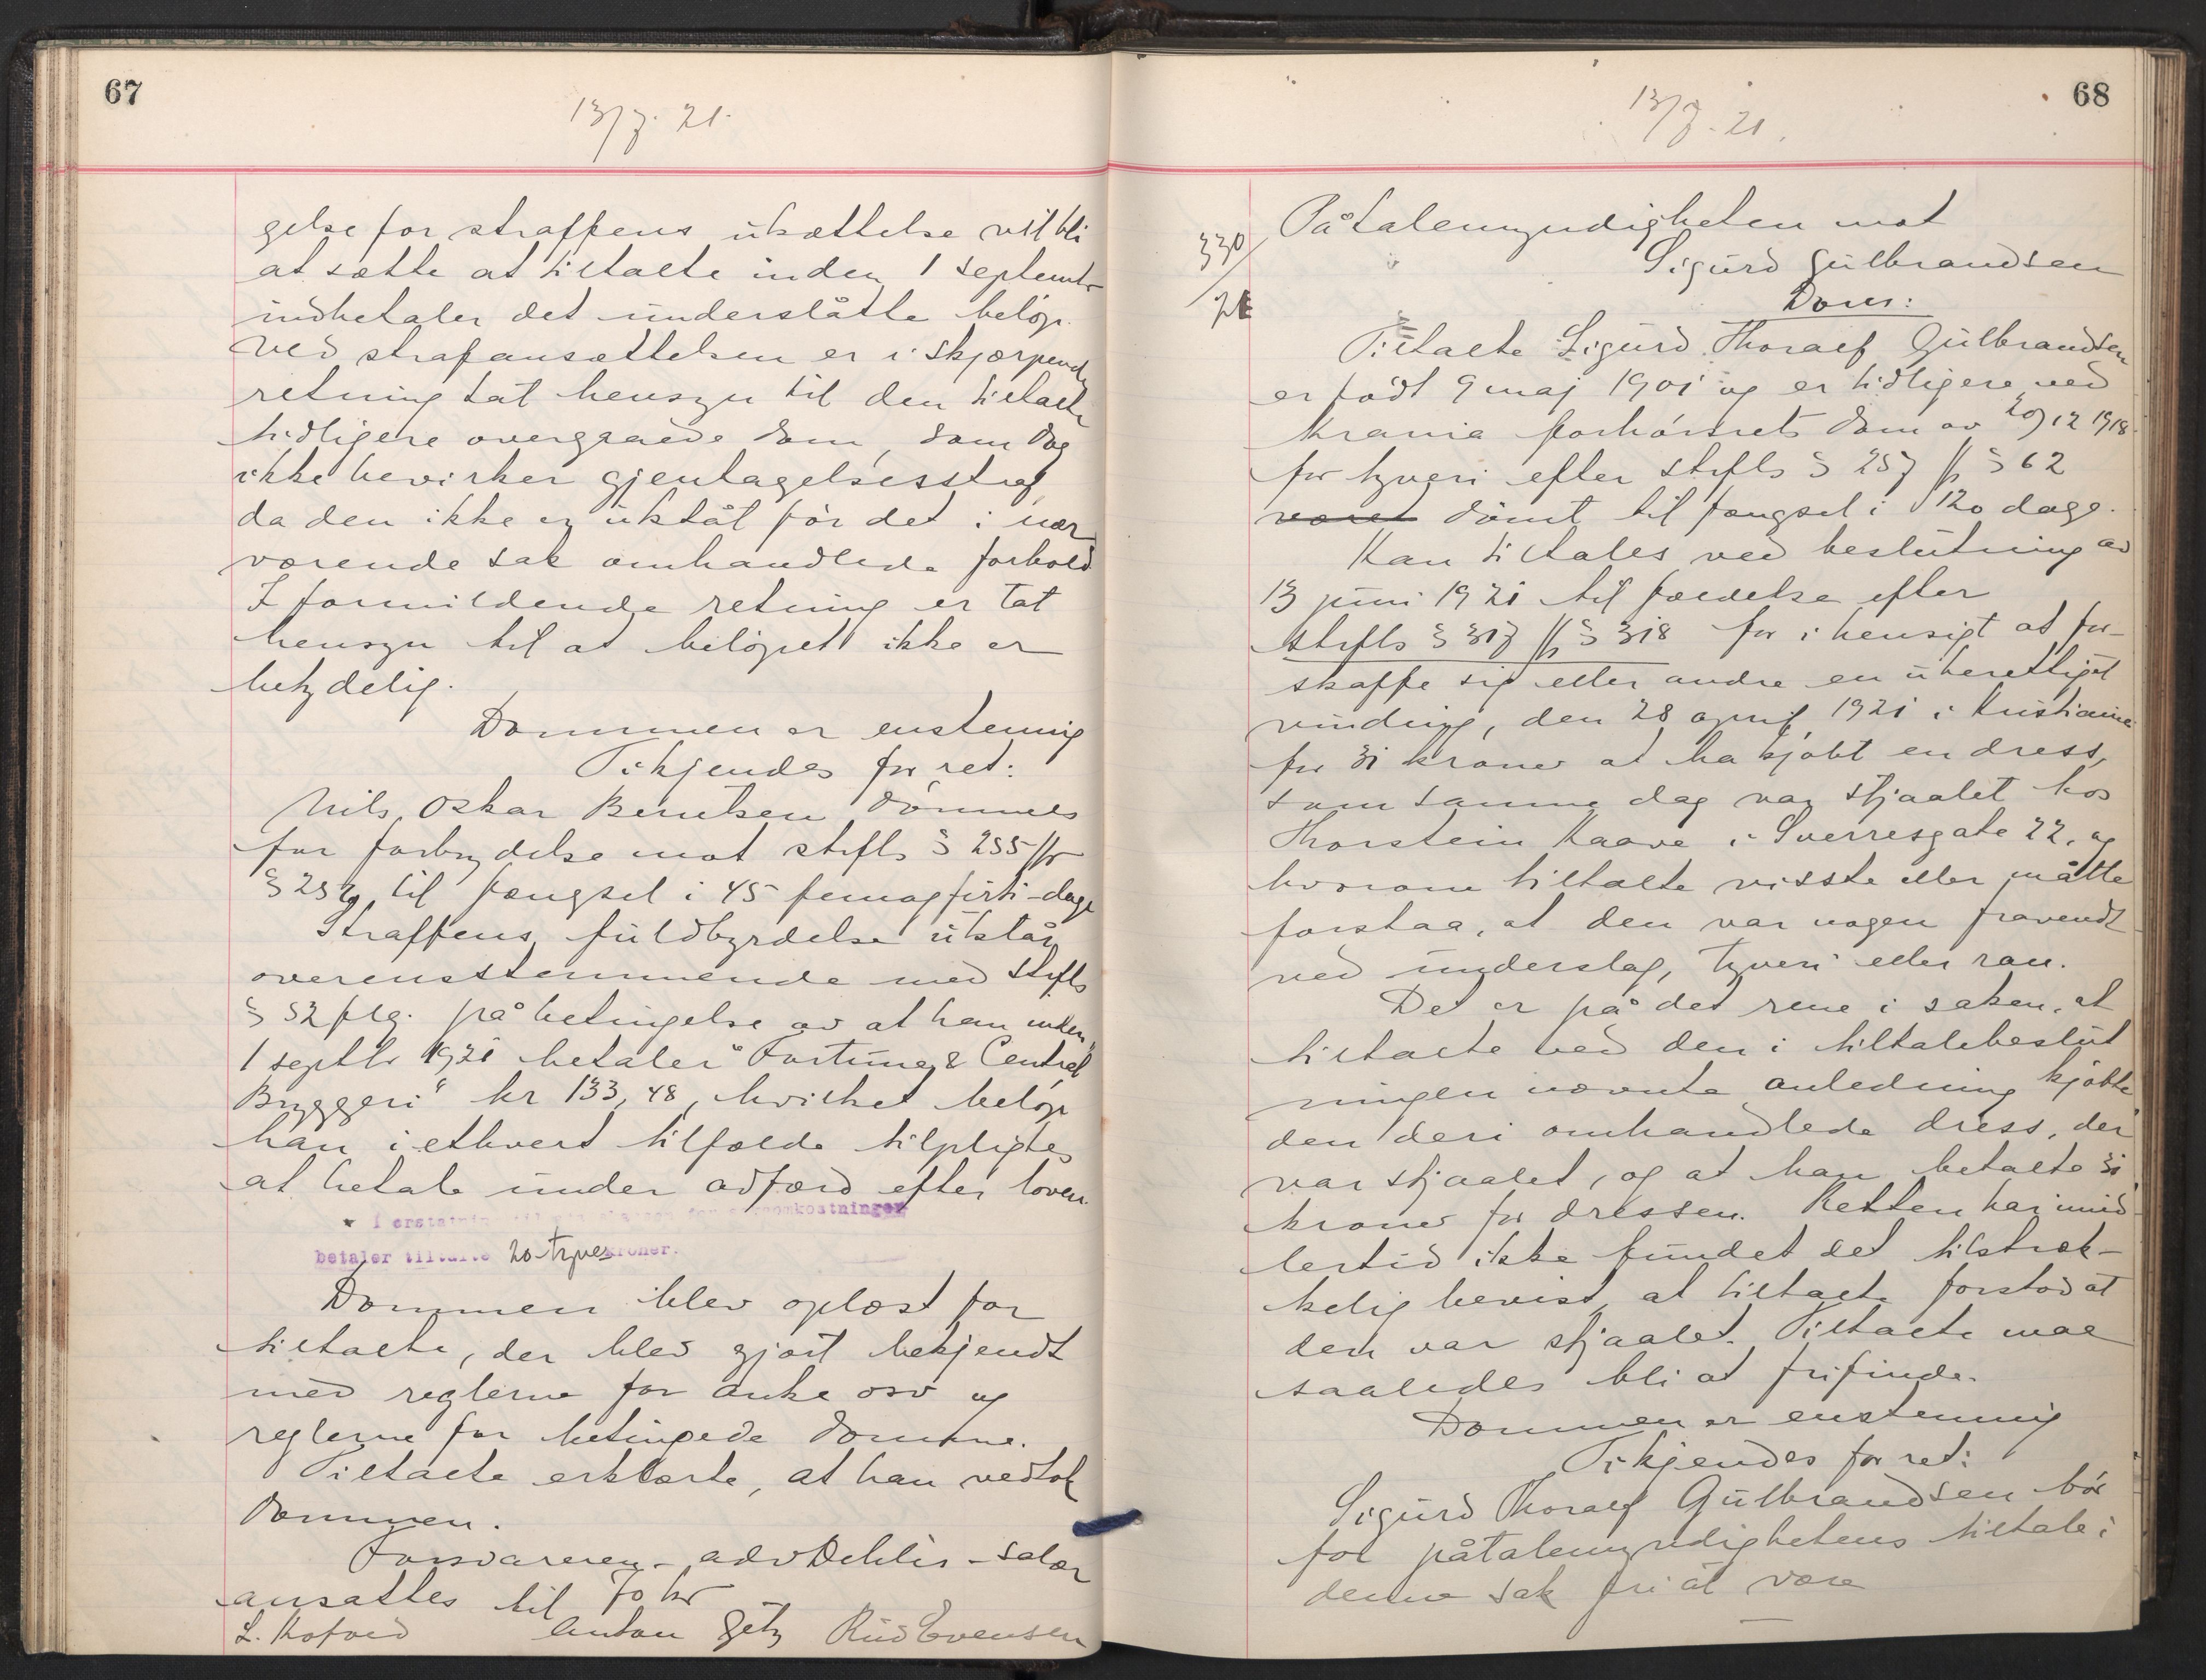 67
13/7. 21.
gelse for straffens utsættelse vil bli
at sætte at tiltalte inden 1 septembr
indbetaler det underslåtte beløp.
Ved strafansættelsen er i skjærpende
retning tat hensyn til den tiltalte
tidligere overgaaede dom, som dog
ikke bevirker gjentagelsesstraf,
da den ikke er utståt før det i nær
værende sak omhandlede forhold
I formildende retning er tat
hensyn til at beløpet ikke er
betydelig.
Dommen er enstemmig
Ti kjendes for ret:
Nils Oskar Berntsen dømmes
for forbrydelse mot strfls § 255 jfr
til fængsel i 45 femogfirti-dage
Straffens fuldbyrdelse utstår
overensstemmende med strfls
§ 52 flg. på betingelse av at han inden
1 septbr 1921 betaler "Foss & Central
Bryggeri" kr 133,48, hvilket beløp
han i ethvert tilfælde tilpligtes
at betale under adfærd efter loven.
I erstatning til for saksomkostninger
betaler tiltalte 20-tyve kroner.
Dommen blev oplæst for
tiltalte, der blev gjort bekjendt
med reglerne for anke osv og
reglerne for betingede domme.
Tiltalte erklærte, at han vedtok
dommen.
Forsvareren - adv Dehlis - salær
ansattes til 70 kr
L. Kofoed Anton Rud Evensen
68
13/7. 21.
330/21
Påtalemyndigheten mot
Sigurd Gulbrandsen
Dom:
Tiltalte Sigurd Thoralf Gulbrandsen
er født 9 maj 1901 og er tidligere ved
Krania forhørsrets dom av 20/12 1918
for tyveri efter strfls § 257 jfr § 62
været dømt til fængsel i 120 dage.
Han tiltales ved beslutning av
13 juni 1921 til fældelse efter
strfls § 317 jfr § 318 for i hensigt at for-
skaffe sig eller andre en uberettiget
vinding, den 28 april 1921 i Kristiania
for 31 kroner at ha kjøbt en dress,
som samme dag var stjaalet hos
Thorstein Kaave i Sverresgate 22, og
hvorom tiltalte visste eller måtte
forstaa, at den var nogen fravendt
ved underslag, tyveri eller ran.
Det er på det rene i saken, at
tiltalte ved den i tiltalebeslut
ningen nævnte anledning kjøbte
den deri omhandlede dress, der
var stjaalet, og at han betalte 31
kroner for dressen. Retten har imid
lertid ikke fundet det tilstræk-
kelig bevist, at tiltalte forstod at
den var stjaalet. Tiltalte maa
saaledes bli at frifinde.
Dommen er enstemmig
Ti kjendes for ret:
Sigurd Thoralf Gulbrandsen bør
for påtalemyndighetens tiltale i
denne sak fri at være